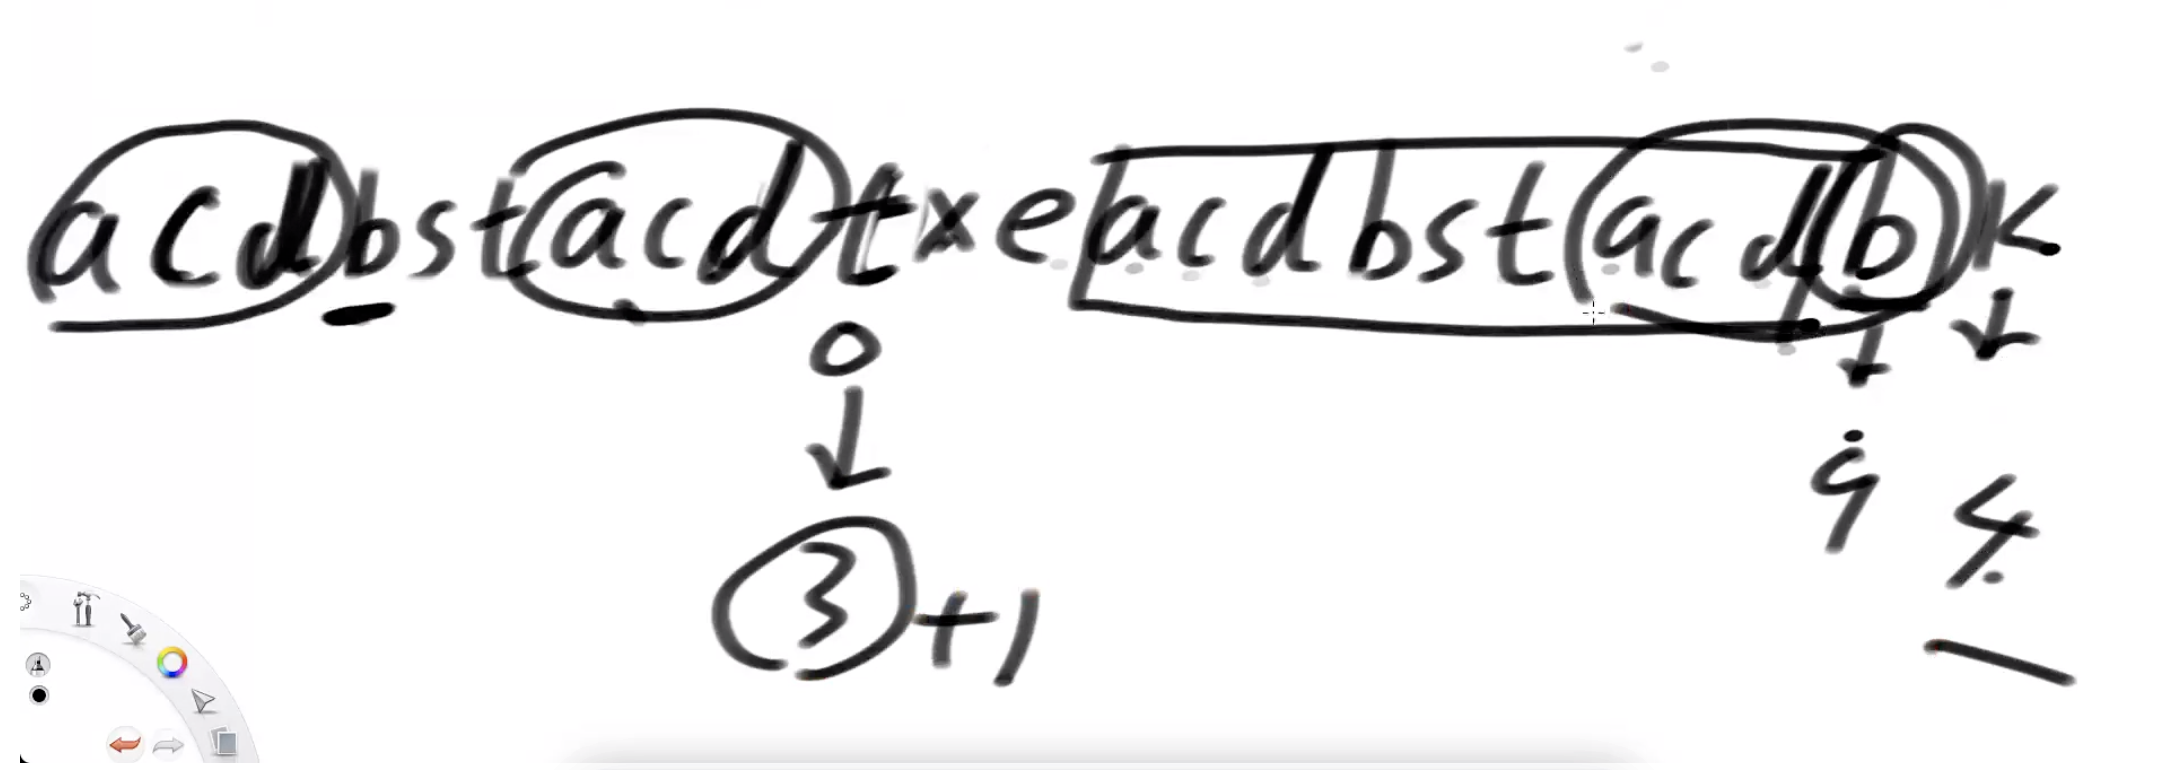 acdbstacdtxeacdbstacdbk
0
9 4
3+1